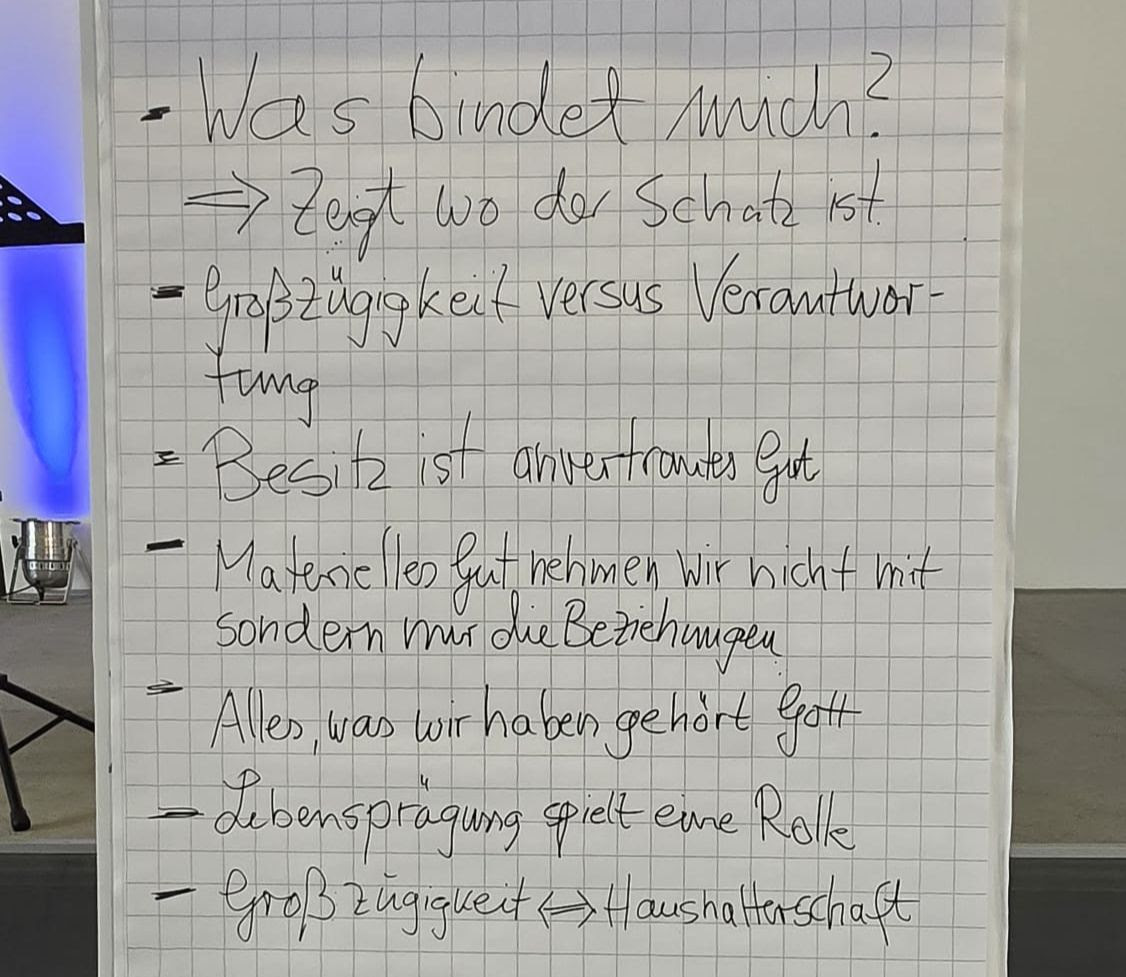 - Was bindet mich?
⇒ Zeigt wo der Schatz ist
- Großzügigkeit versus Verantwor-
tung
- Besitz ist anvertrautes Gut
- Materielles Gut nehmen wir nicht mit
sondern nur die Beziehungen
- Alles, was wir haben gehört Gott
- Lebensprägung spielt eine Rolle
- Großzügigkeit ⇔ Haushalterschaft